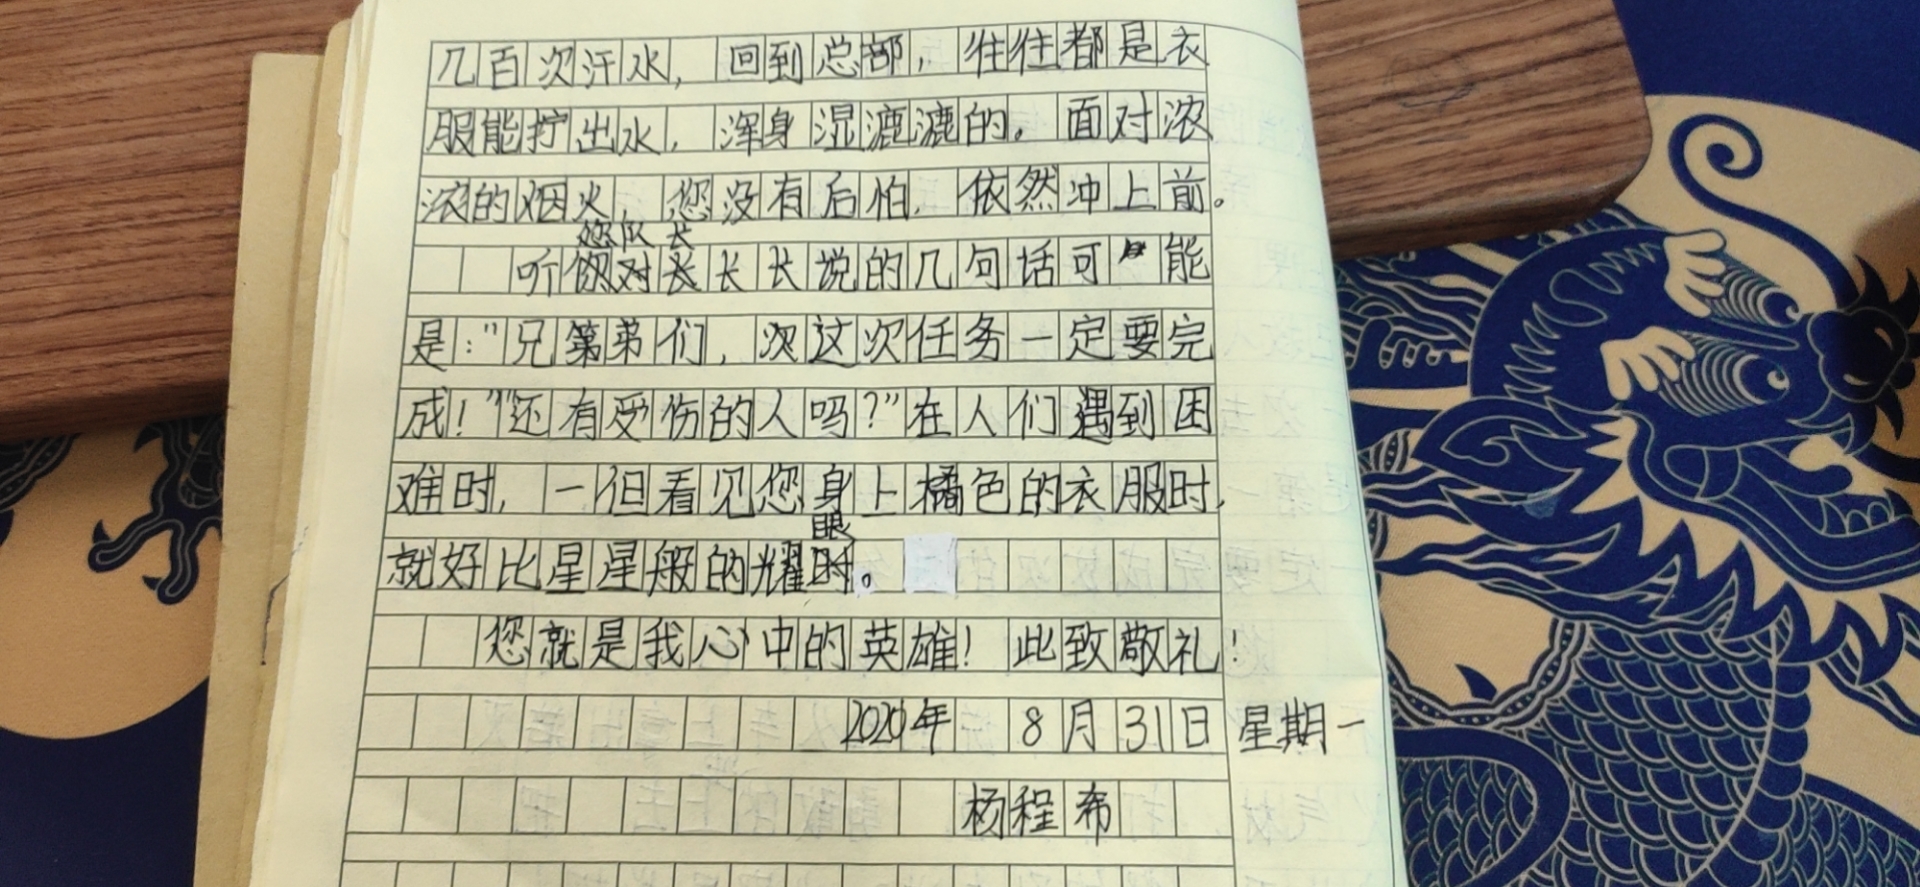 几百次汗水，回到总部，往往都是衣
服能拧出水，浑身湿漉漉的。面对浓
浓的烟火，您没有后怕，依然冲上前。
您队长
听你对长长长说的几句话可能
是：“兄第弟们，次这次任务一定要完
成！”“还有受伤的人吗？”在人们遇到困
难时，一但看见您身上橘色的衣服时，
眼
就好比星星般的耀时。
您就是我心中的英雄！此致敬礼！
2020年 8月31日 星期一
杨程布